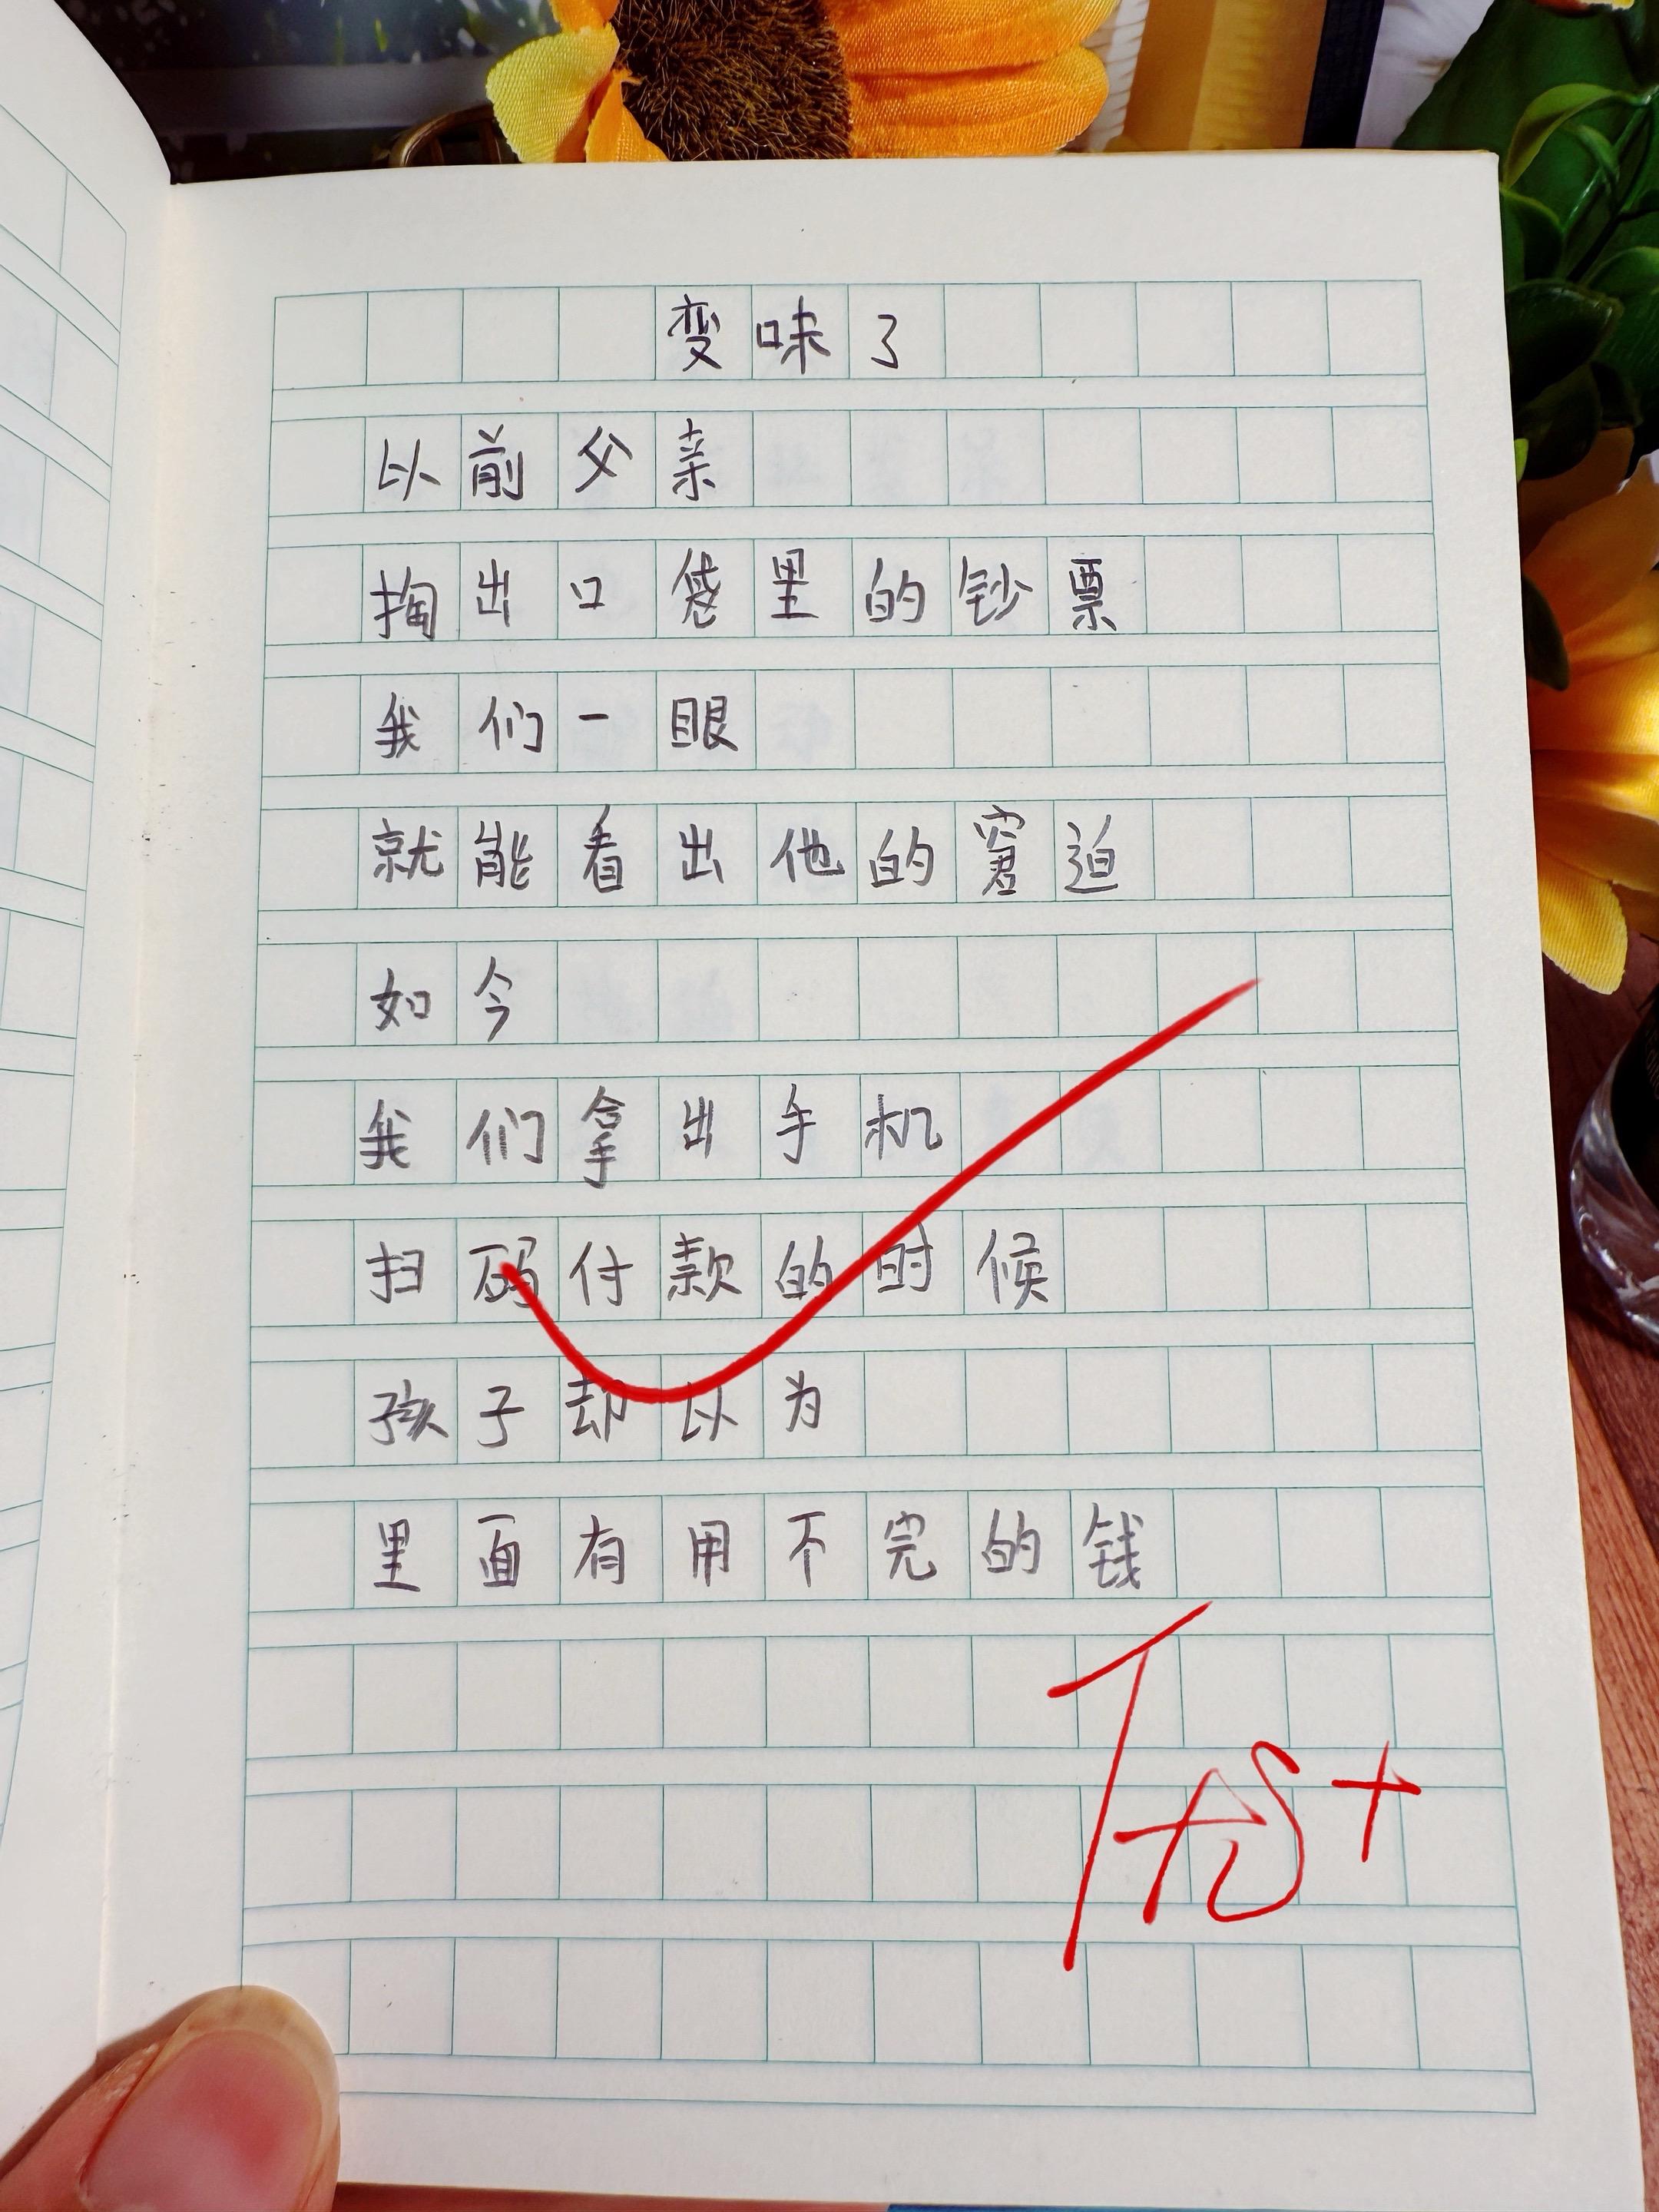 变味了
以前父亲
掏出口袋里的钞票
我们一眼
就能看出他的窘迫
如今
我们拿出手机
扫码付款的时候
孩子却以为
里面有用不完的钱